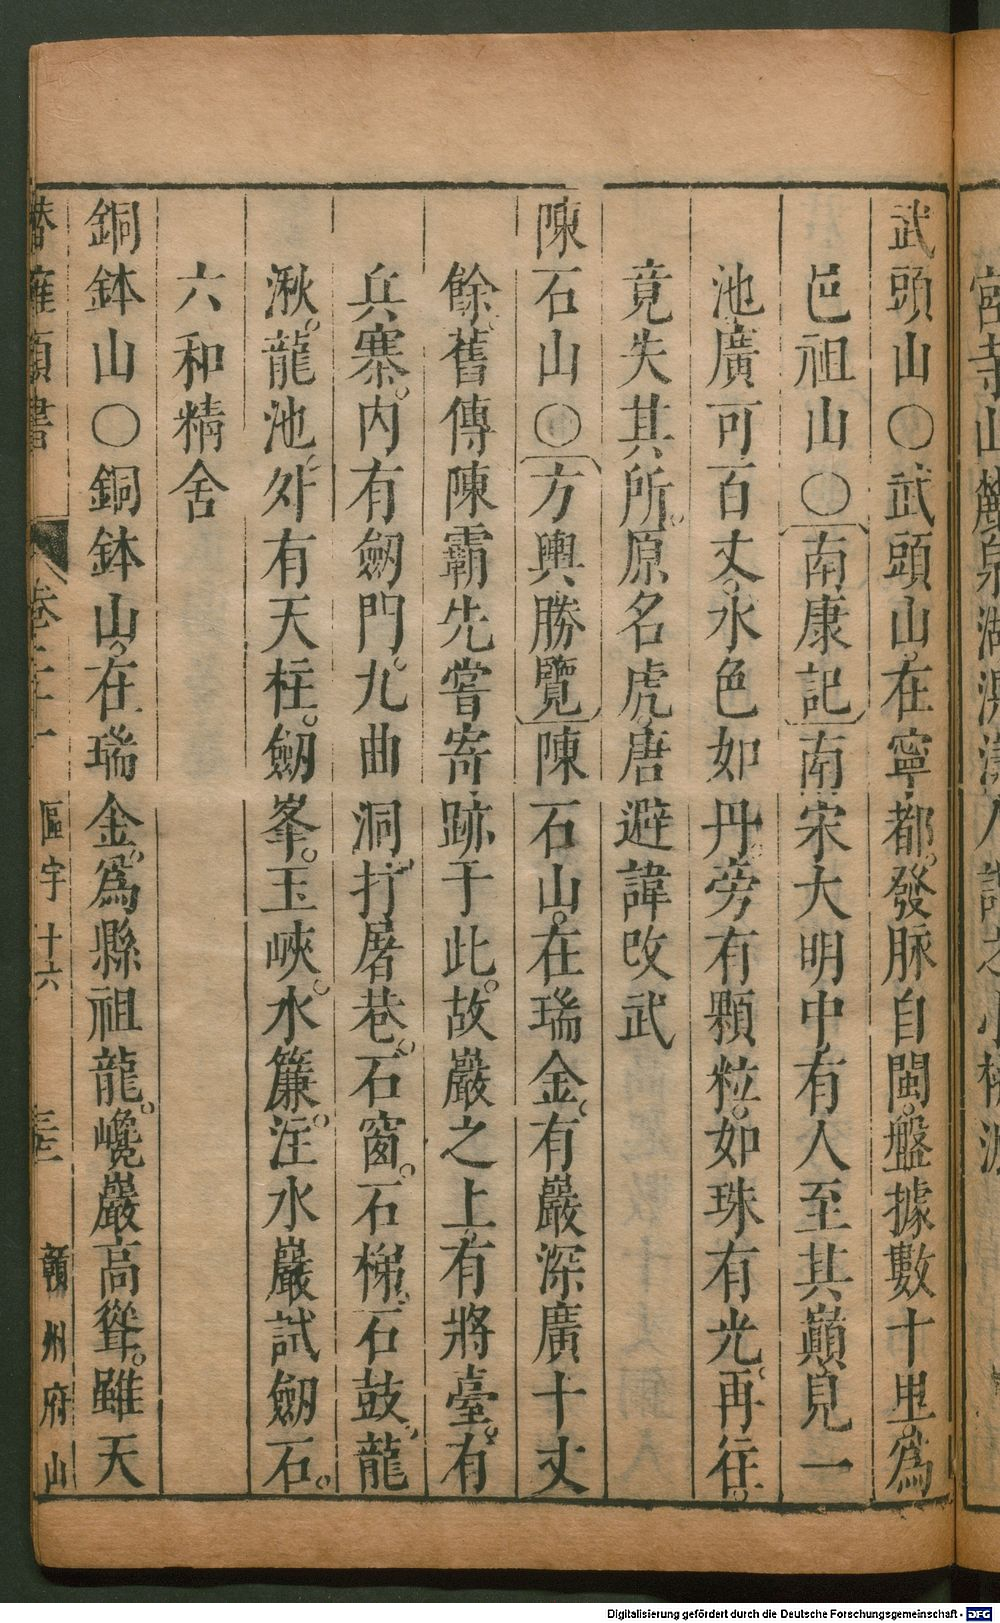 武頭山○武頭山。在寧都。發脉自閩。盤據數十里。爲
邑祖山○〔南康記〕南宋大明中。有人至其巔。見一
池。廣可百丈。水色如丹。旁有顆粒。如珠有光。再往。
竟失其所。原名虎。唐避諱改武
陳石山○〔方輿勝覽〕陳石山。在瑞金。有巖深廣十丈
餘。舊傳陳霸先嘗寄跡于此。故巖之上。有將臺。有
兵寨。内有劒門。九曲洞。打屠巷。石窗。石梯。石鼓。龍
湫。龍池。外有天柱。劒峯。玉峽。水簾。注水巖試劒石。
六和精舍
銅鉢山○銅鉢山。在瑞金。爲縣祖龍。巉巖高聳。雖天
潛確類書
區宇十六
贛州府山
Digitalisierung gefördert durch die Deutsche Forschungsgemeinschaft - DFG